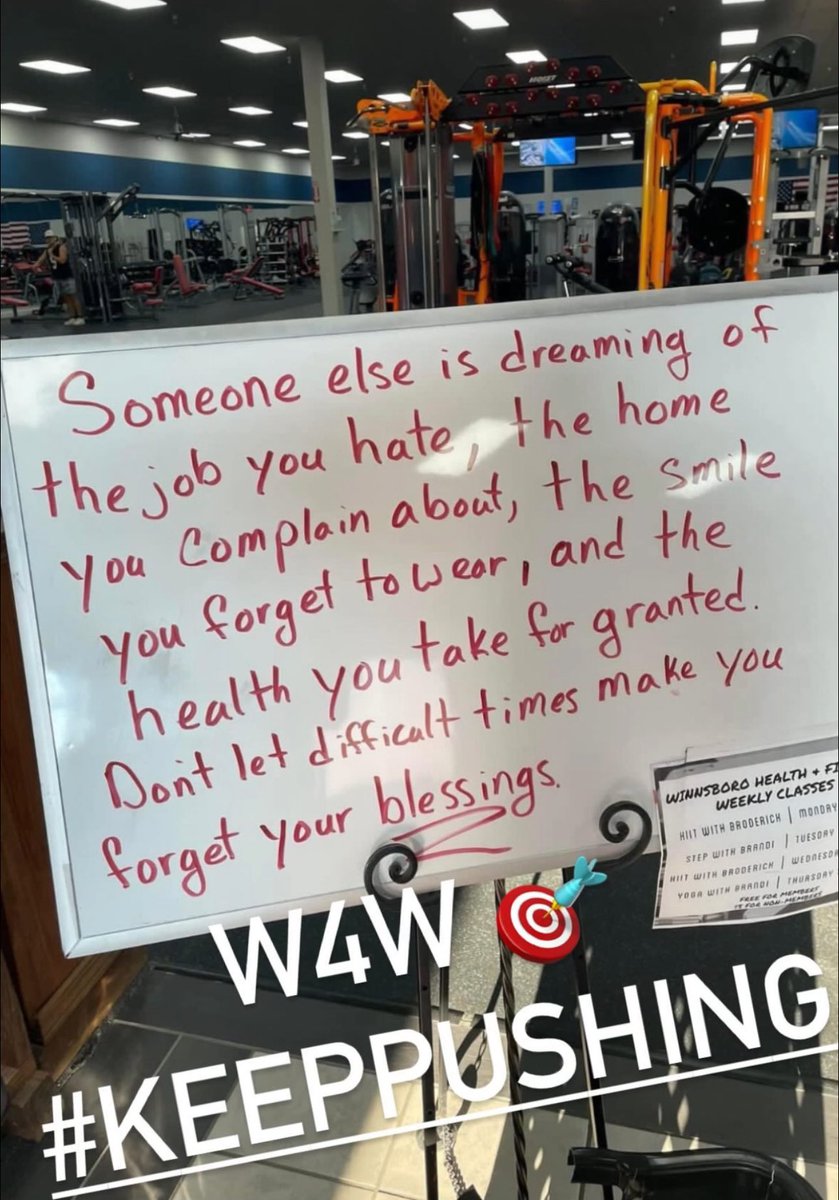 HOIST
Someone else is dreaming of
the job you hate, the home
you complain about, the smile
you forget to wear, and the
health you take for granted.
Don't let difficult times make you
forget your blessings.
WINNSBORO HEALTH + FI
WEEKLY CLASSES
HIIT WITH BRODERICK | MONDAY
STEP WITH BRANDI | TUESDAY
HIIT WITH BRODERICK | WEDNESDA
YOGA WITH BRANDI | THURSDAY
FREE FOR MEMBERS
FOR NON-MEMBERS
W4W 🎯
#KEEPPUSHING